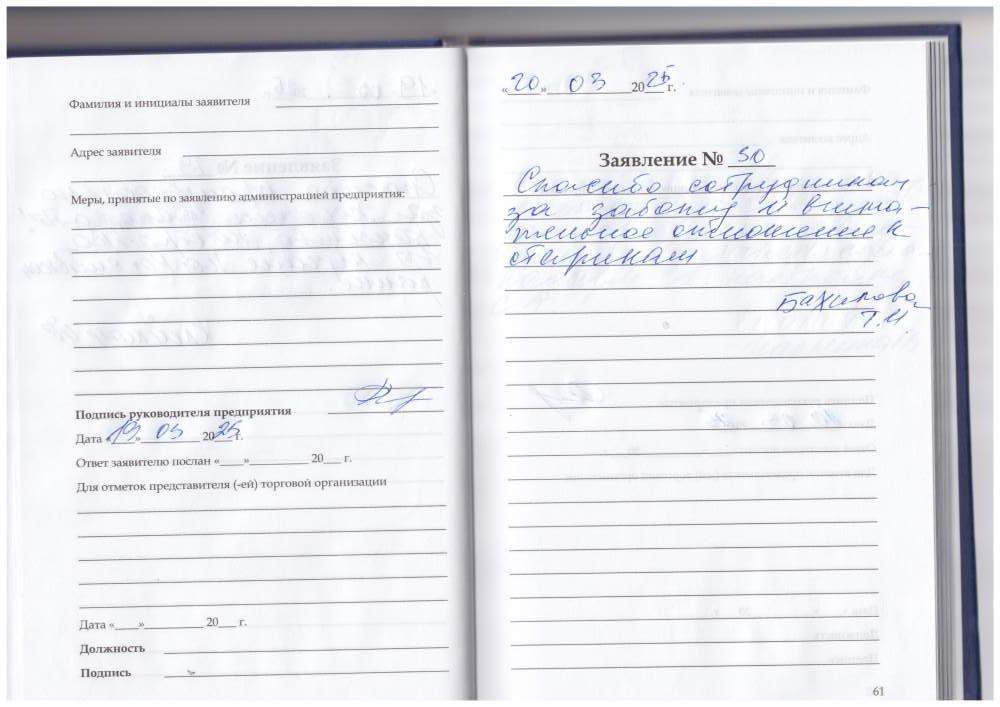 Фамилия и инициалы заявителя
Адрес заявителя
Меры, принятые по заявлению администрацией предприятия:
Подпись руководителя предприятия
Дата «19» 03 2025 г.
Ответ заявителю послан «____»__________ 20___ г.
Для отметок представителя (-ей) торговой организации
Дата «____»__________ 20___ г.
Должность
Подпись
«20» 03 2025 г.
Заявление № 30
Спасибо сотрудникам
за заботу и внима-
тельное отношение к
старикам
Т.И.
61